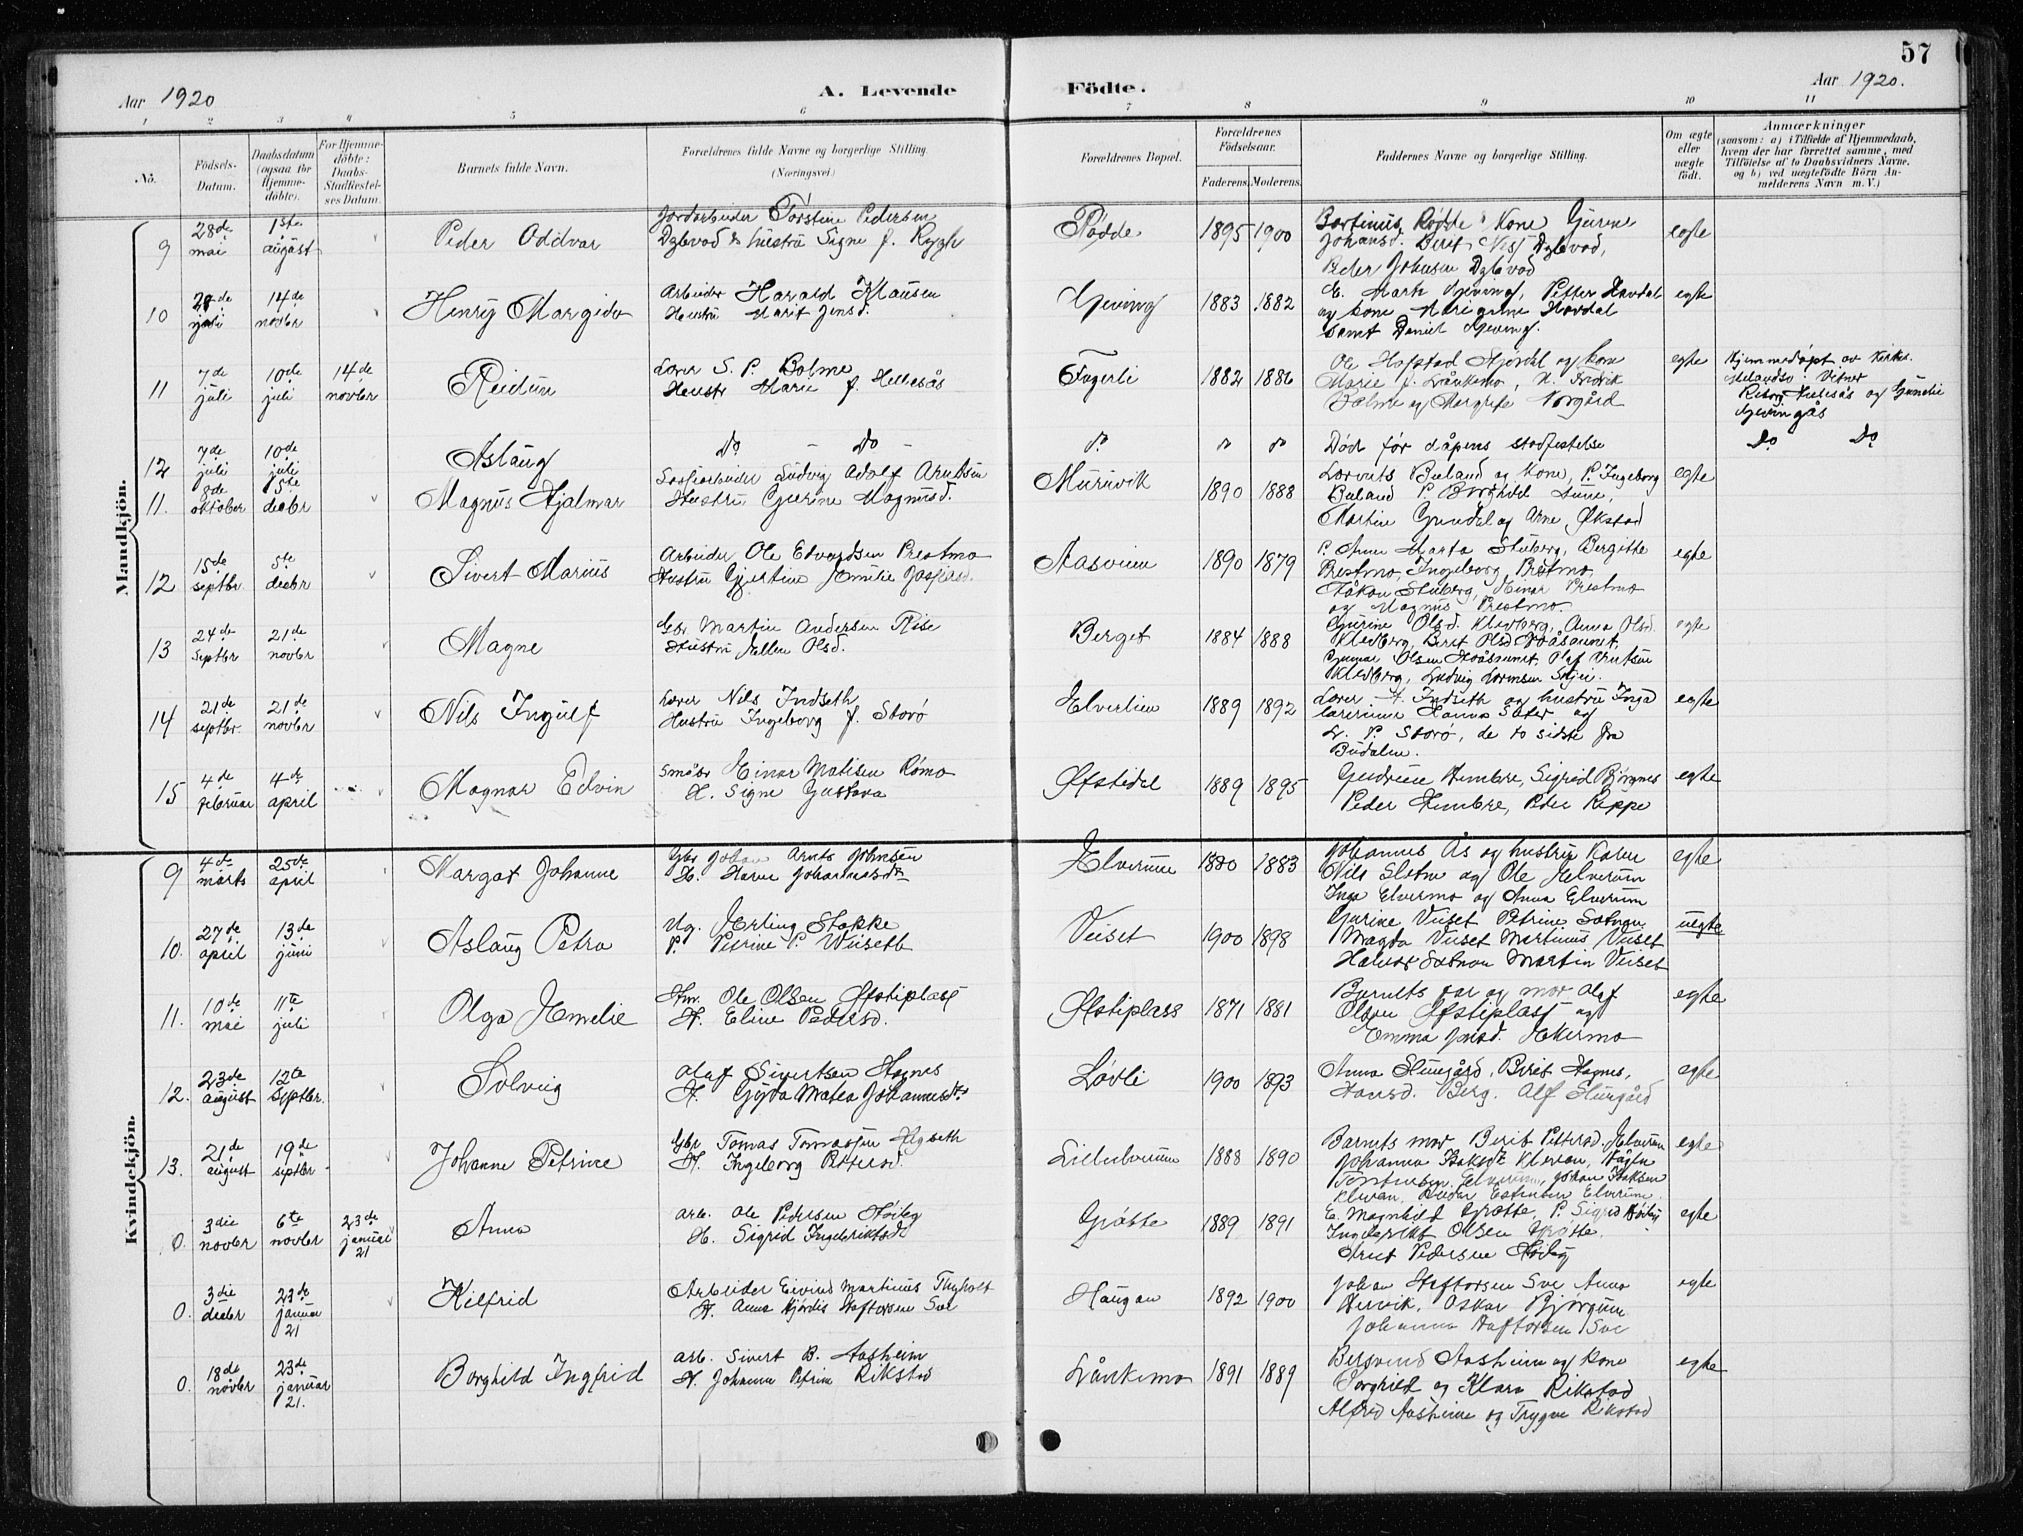 57
Aar 1920
A. Levende
Födte.
Aar 1920.
1 2 3 4 5 6 7 8 9 10 11
No.
Födsels-
Datum.
Daabsdatum
(ogsaa for
Hjemme-
döbte).
For Hjemme-
döbte:
Daabs-
Stadfæstel-
ses Datum.
Barnets fulde Navn.
Forældrenes fulde Navne og borgerlige Stilling.
(Næringsvei)
Forældrenes Bopæl.
Forældrenes
Födselsaar.
Faderens. Moderens.
Faddernes Navne og borgerlige Stilling.
Om ægte
eller
uægte
födt.
Anmærkninger
(saasom: a) i Tilfælde af Hjemmedaab,
hvem der har forrettet samme, med
Tilföielse af to Daabsvidners Navne,
og b) ved uægtefödte Börn An-
melderens Navn m. V.)
Mandkjön.
9 28de mai 1ste august Peder Oddvar
Jordarbeider Torstein Pedersen
Dybvad & hustru Signe f. Rygh
Rødde 1895 1900
Bortinus Rødde Kone Gurine
Johansd. Berit Dybvad,
Peder Johnsen Dybvad
egte
10 14de novbr Henry Margido
Arbeider Harald Klausen
Hustru Marit Jensd.
Gjeving 1883 1882
E. Marth Gjeving, Petter Havdal
og kone Havdal
samt Daniel Gjeving.
egte
11 7de juli 10de juli 14de novbr Reidun
Lærer S. P. Bolme
Hustr Marie f. Hellesås
Fagerli 1882 1886
Ole Hofstad Stjørdal og kone
Marie f. Lånkemo, H. Fredrik
Bolme og Margrete Norgård
egte
Hjemmedøpt av
Vitner
Hellesås og Gunelie
Gjevingås
12 7de juli 10de juli Aslaug
Do - Do -
Død før dåpens stadfestelse
Do Do
11. 8de oktober 5te decbr Magnus Hjalmar
Ludvig Adolf Arntsen
Hustru Gjerine Magnusd.
Muruvik 1890 1888
Buland og Kone, P. Ingeborg
Buland P. Borghild
Martin og Arne Økstad
egte
12 15de septbr 5te decbr Sivert Marius
Arbeider Ole Edvardsen Prestmo
Hustru Gjertine Emilie
Aasveien 1890 1879
P. Anne Marta Stuberg, Bergitte
Prestmo, Ingeborg Prestmo,
Håkon Stuberg, Einar Prestmo
og Magnus Prestmo.
egte
13 24de septbr 21de novbr Magne
Gbr. Martin Andersen Rise
Hustru Ellen Olsd.
Berget 1884 1888
Gurine Olsd. Kleberg, Anna Olsd.
Kleberg, Berit Olsd
Gunnar Olsen Olaf Arntsen
Kleberg, Ludvig
egte
14 21de septbr. 21de novbr Nils Ingulf
Lærer Nils Indseth
Hustru Ingeborg f. Storø
Elvertien 1889 1892
Lærer Indseth og hustru Inga
lærerinne Hanna Sæter og
P. Storø, de to sidste fra
Budalen.
egte
15 4de februar 4de april Magnar Edvin
Småbr Einar Matisen Rømo
H. Signe Gustava
Øfstidal 1889 1895
Gudrun Hembre, Sigrid
Peder Hembre, Peder Reppe
egte
Kvindekjön.
9 4de marts 25de april Margot Johanne
Gbr Johan Arnts Johnsen
H. Johannesdtr
Elverum 1880 1883
Johannes Ås og hustru Karen
Nils og Ole Elverum
Inga Elvermo og Anna Elverum
egte
10. 27de april 13de juni Aslaug Petra
Ug. Erling Stokke
P. Petrine P. Wiiseth
Veiset 1900 1898
Gurine Veiset Petrine Sætnan
Magda Veiset Martinus Veiset
Halvor Sætnan Martin Veiset
uegte
11. 10de mai 11te juli Olga Emelie
Hm. Ole Olsen Øfstiplass
H. Eline Pedersd.
Øfstiplass 1871 1881
Barnets far og mor Olaf
Olsen Øfstiplass og
Emma Ekermo
egte
12. 23de august 12te septbr. Solveig
Olaf Sivertsen Hognes
H. Gyda Matea Johannesdtr
Løvli 1900 1893
Anna Slungård, Berit Hognes,
Hansd. Berg. Alf Slungård
egte
13. 21de august 19de septbr Johanne Petrine
Gbr Tomas Tomassen
H. Ingeborg Pettersd.
Lilleelverum 1888 1890
Barnets mor Berit Pettersd. Elverum
Johanna Isaksdtr
Elverum, Johan Isaksen
Peder Estensen Elverum
egte
0. 3die novbr 6te novbr 23de januar 21 Anna
arb. Ole Pedersen Høiby
H. Sigrid Ingebriktsdt
Grøtte 1889 1891
E. Magnhild Grøtte, P. Sigrid Høiby
Ingebrikt Olsen Grøtte
Arnt Pedersen Høiby
egte
0. 3die decbr 23de januar 21 Kilfrid
Arbeider Eivind Martinus Thyholt
H. Anna Hjørdis Haftorsen Sve
Haugan 1892 1900
Johan Haftorsen Sve Anna
Hervik, Oskar Bjørgum
Johanna Haftorsen Sve
egte
0. 18de novbr 23de januar 21. Borghild Ingfrid
arb. Sivert B. Aasheim
H. Johanna Petrine Rikstad
Lånkemo 1891 1889
Bersvend Aasheim og kone
Borghild og Klara Rikstad
Alfred Aasheim og Trygve Rikstad
egte